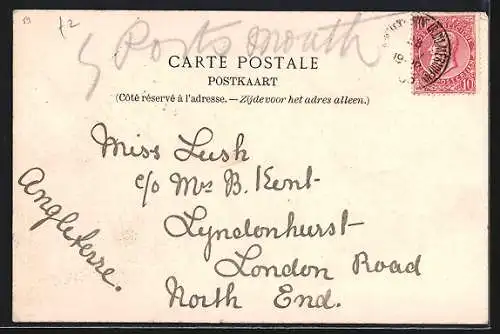 £2
Portsmouth
CARTE POSTALE
POSTKAART
(Côté réservé à l'adresse. — Zijde voor het adres alleen.)
Miss Lush
c/o Mrs B. Kent
Lyndonhurst
London Road
North End.
Angleterre.
10